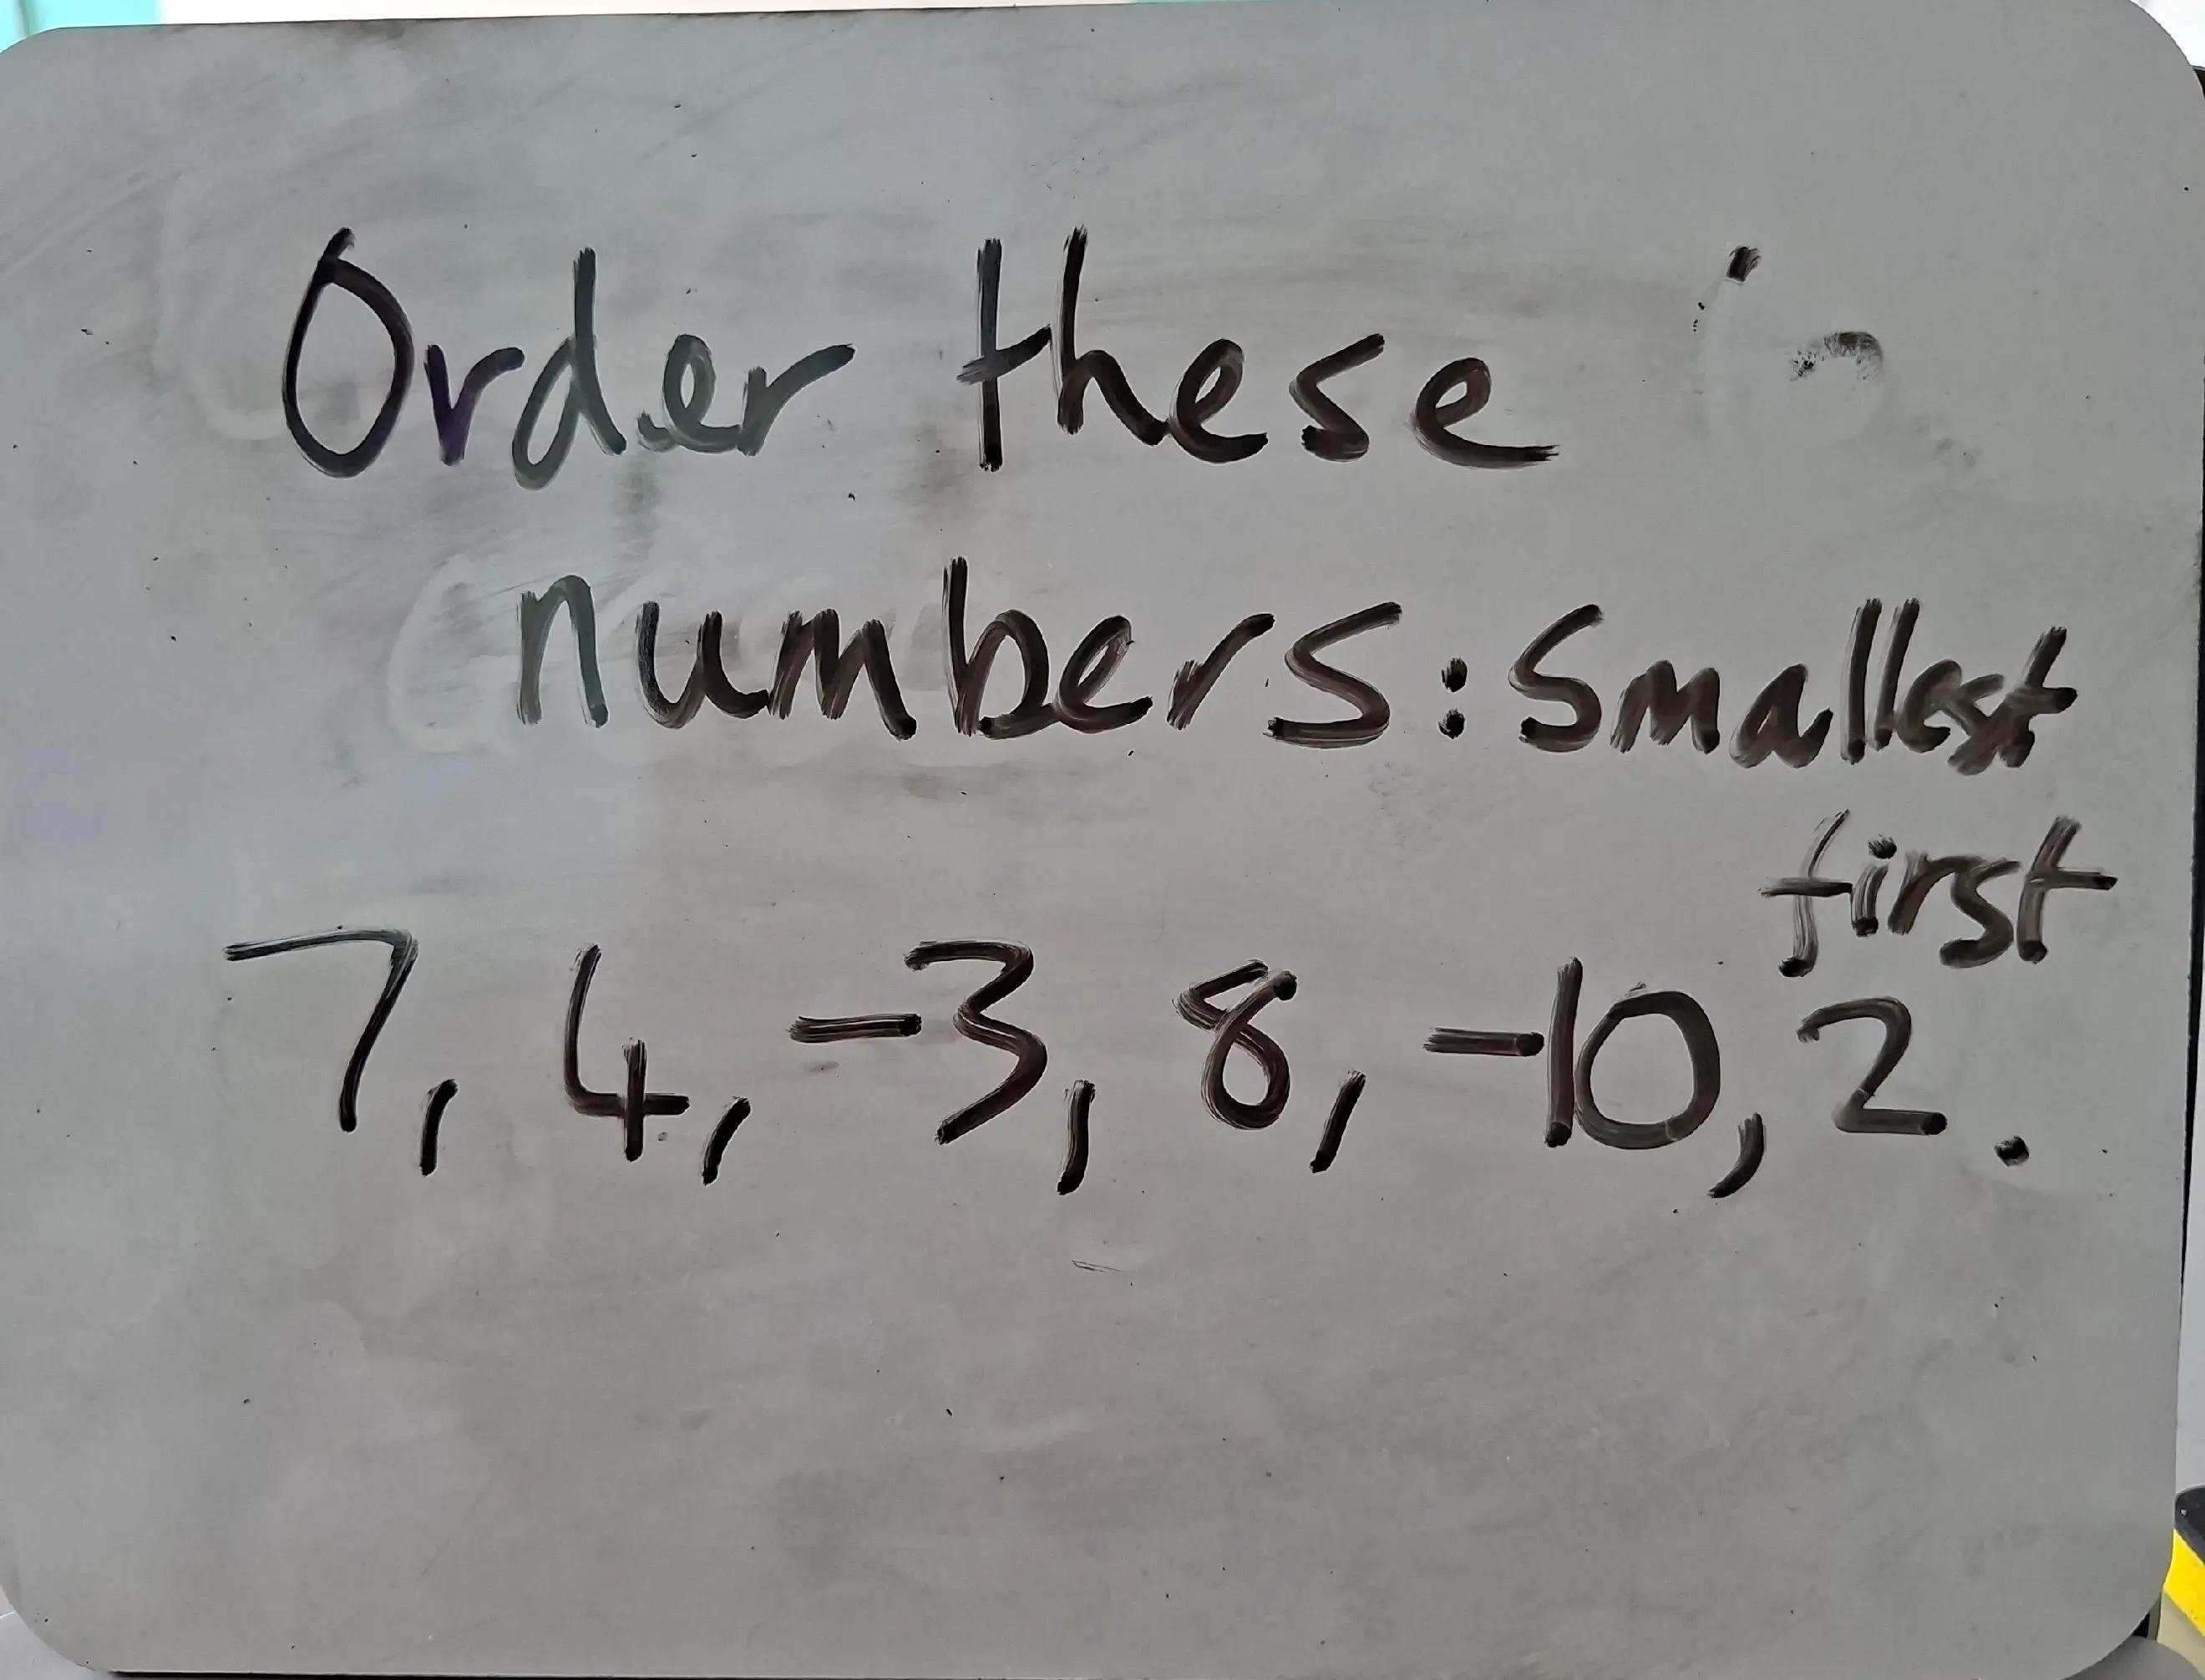 Order these
numbers: smallest
first
7, 4, -3, 8, -10, 2.